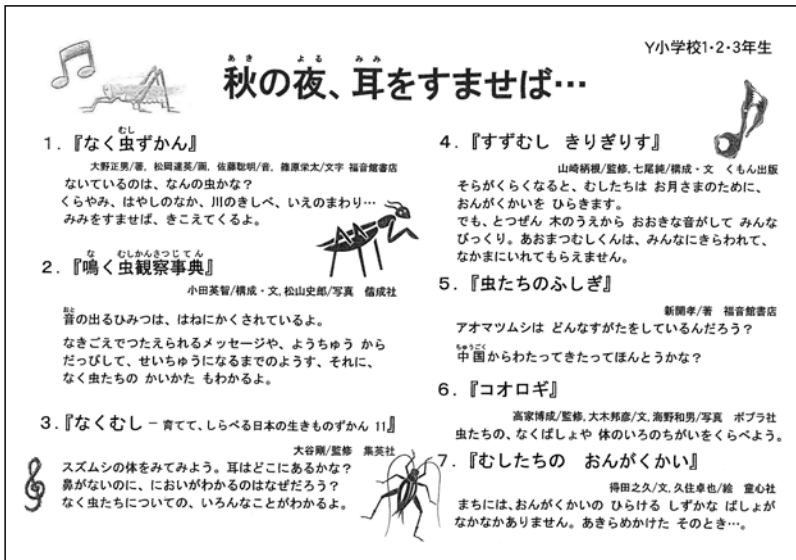 Y小学校1・2・3年生
秋の夜、耳をすませば…
1.『なく虫ずかん』
大野正男/著, 松岡達英/画, 佐藤聰明/音, 篠原栄太/文字 福音館書店
ないているのは、なんの虫かな?
くらやみ、はやしのなか、川のきしべ、いえのまわり…
みみをすませば、きこえてくるよ。
2.『鳴く虫観察事典』
小田英智/構成・文,松山史郎/写真 偕成社
音の出るひみつは、はねにかくされているよ。
なきごえでつたえられるメッセージや、ようちゅう から
だっぴして、せいちゅうになるまでのようす、それに、
なく虫たちの かいかた もわかるよ。
3.『なくむし - 育てて、しらべる日本の生きものずかん 11』
大谷剛/監修 集英社
スズムシの体をみてみよう。耳はどこにあるかな?
鼻がないのに、においがわかるのはなぜだろう?
なく虫たちについての、いろんなことがわかるよ。
4.『すずむし きりぎりす』
山崎柄根/監修,七尾純/構成・文 くもん出版
そらがくらくなると、むしたちは お月さまのために、
おんがくかいを ひらきます。
でも、とつぜん 木のうえから おおきな音がして みんな
びっくり。あおまつむしくんは、みんなにきらわれて、
なかまにいれてもらえません。
5.『虫たちのふしぎ』
新開孝/著 福音館書店
アオマツムシは どんなすがたをしているんだろう?
中国からわたってきたってほんとうかな?
6.『コオロギ』
高家博成/監修,大木邦彦/文,海野和男/写真 ポプラ社
虫たちの、なくばしょや 体のいろのちがいをくらべよう。
7.『むしたちの おんがくかい』
得田之久/文,久住卓也/絵 童心社
まちには、おんがくかいの ひらける しずかな ばしょが
なかなかありません。あきらめかけた そのとき…。